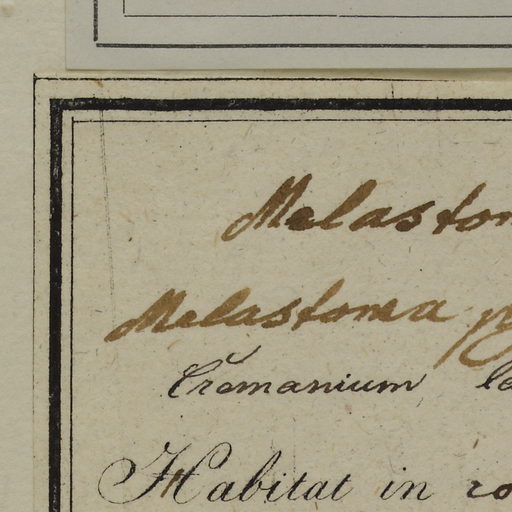 Melaston
Melastoma
Cremanium
Habitat in